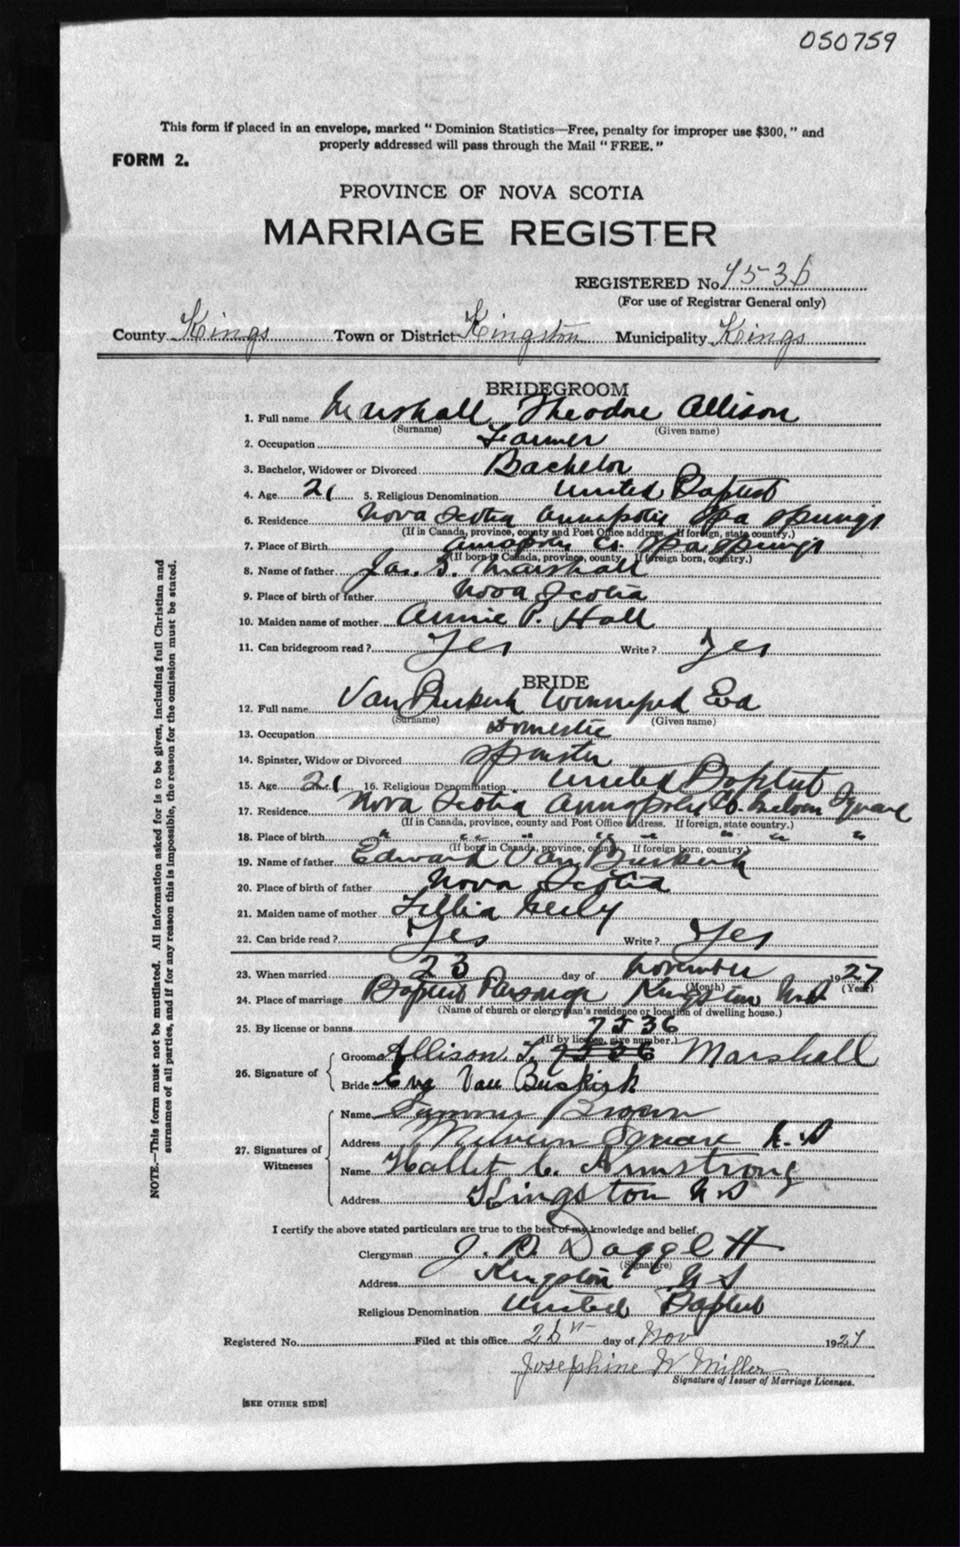 050759
This form if placed in an envelope, marked "Dominion Statistics—Free, penalty for improper use $300," and
properly addressed will pass through the Mail "FREE."
FORM 2.
PROVINCE OF NOVA SCOTIA
MARRIAGE REGISTER
REGISTERED No. 7536
(For use of Registrar General only)
County Kings Town or District Kingston Municipality Kings
BRIDEGROOM
1. Full name Marshall Theodore Allison
(Surname) (Given name)
2. Occupation Farmer
3. Bachelor, Widower or Divorced Bachelor
4. Age 21 5. Religious Denomination United Baptist
6. Residence Nova Scotia Annapolis Spa Springs
(If in Canada, province, county and Post Office address. If foreign, state country.)
7. Place of Birth Annapolis Co. Spa Springs
(If born in Canada, province, county. If foreign born, country.)
8. Name of father Jas. S. Marshall
9. Place of birth of father Nova Scotia
10. Maiden name of mother Annie P. Hall
11. Can bridegroom read? Yes Write? Yes
BRIDE
12. Full name Van Buskirk Winnifred Eva
(Surname) (Given name)
13. Occupation Domestic
14. Spinster, Widow or Divorced Spinster
15. Age 21 16. Religious Denomination United Baptist
17. Residence Nova Scotia Annapolis Co. Melvern Square
(If in Canada, province, county and Post Office address. If foreign, state country.)
18. Place of birth " " " " " " "
(If born in Canada, province, county. If foreign born, country.)
19. Name of father Edward Van Buskirk
20. Place of birth of father Nova Scotia
21. Maiden name of mother Lillia Neily
22. Can bride read? Yes Write? Yes
23. When married 23 day of November 1927
(Month) (Year)
24. Place of marriage Baptist Parsonage Kingston N.S
(Name of church or clergyman's residence or location of dwelling house.)
25. By license or banns 7536
(If by license, give number.)
26. Signature of Groom Allison T. 7536 Marshall
Bride Eva Van Buskirk
27. Signatures of Witnesses Name Brown
Address Melvern Square N.S
Name Hallet C. Armstrong
Address Kingston N.S
I certify the above stated particulars are true to the best of my knowledge and belief.
Clergyman J. D. Daggett
(Signature)
Address Kingston N S
Religious Denomination United Baptist
Registered No. Filed at this office 26th day of Nov 1927
Josephine W Miller
Signature of Issuer of Marriage Licenses.
[SEE OTHER SIDE]
NOTE.—This form must not be mutilated. All information asked for is to be given, including full Christian and
surnames of all parties, and if for any reason this is impossible, the reason for the omission must be stated.